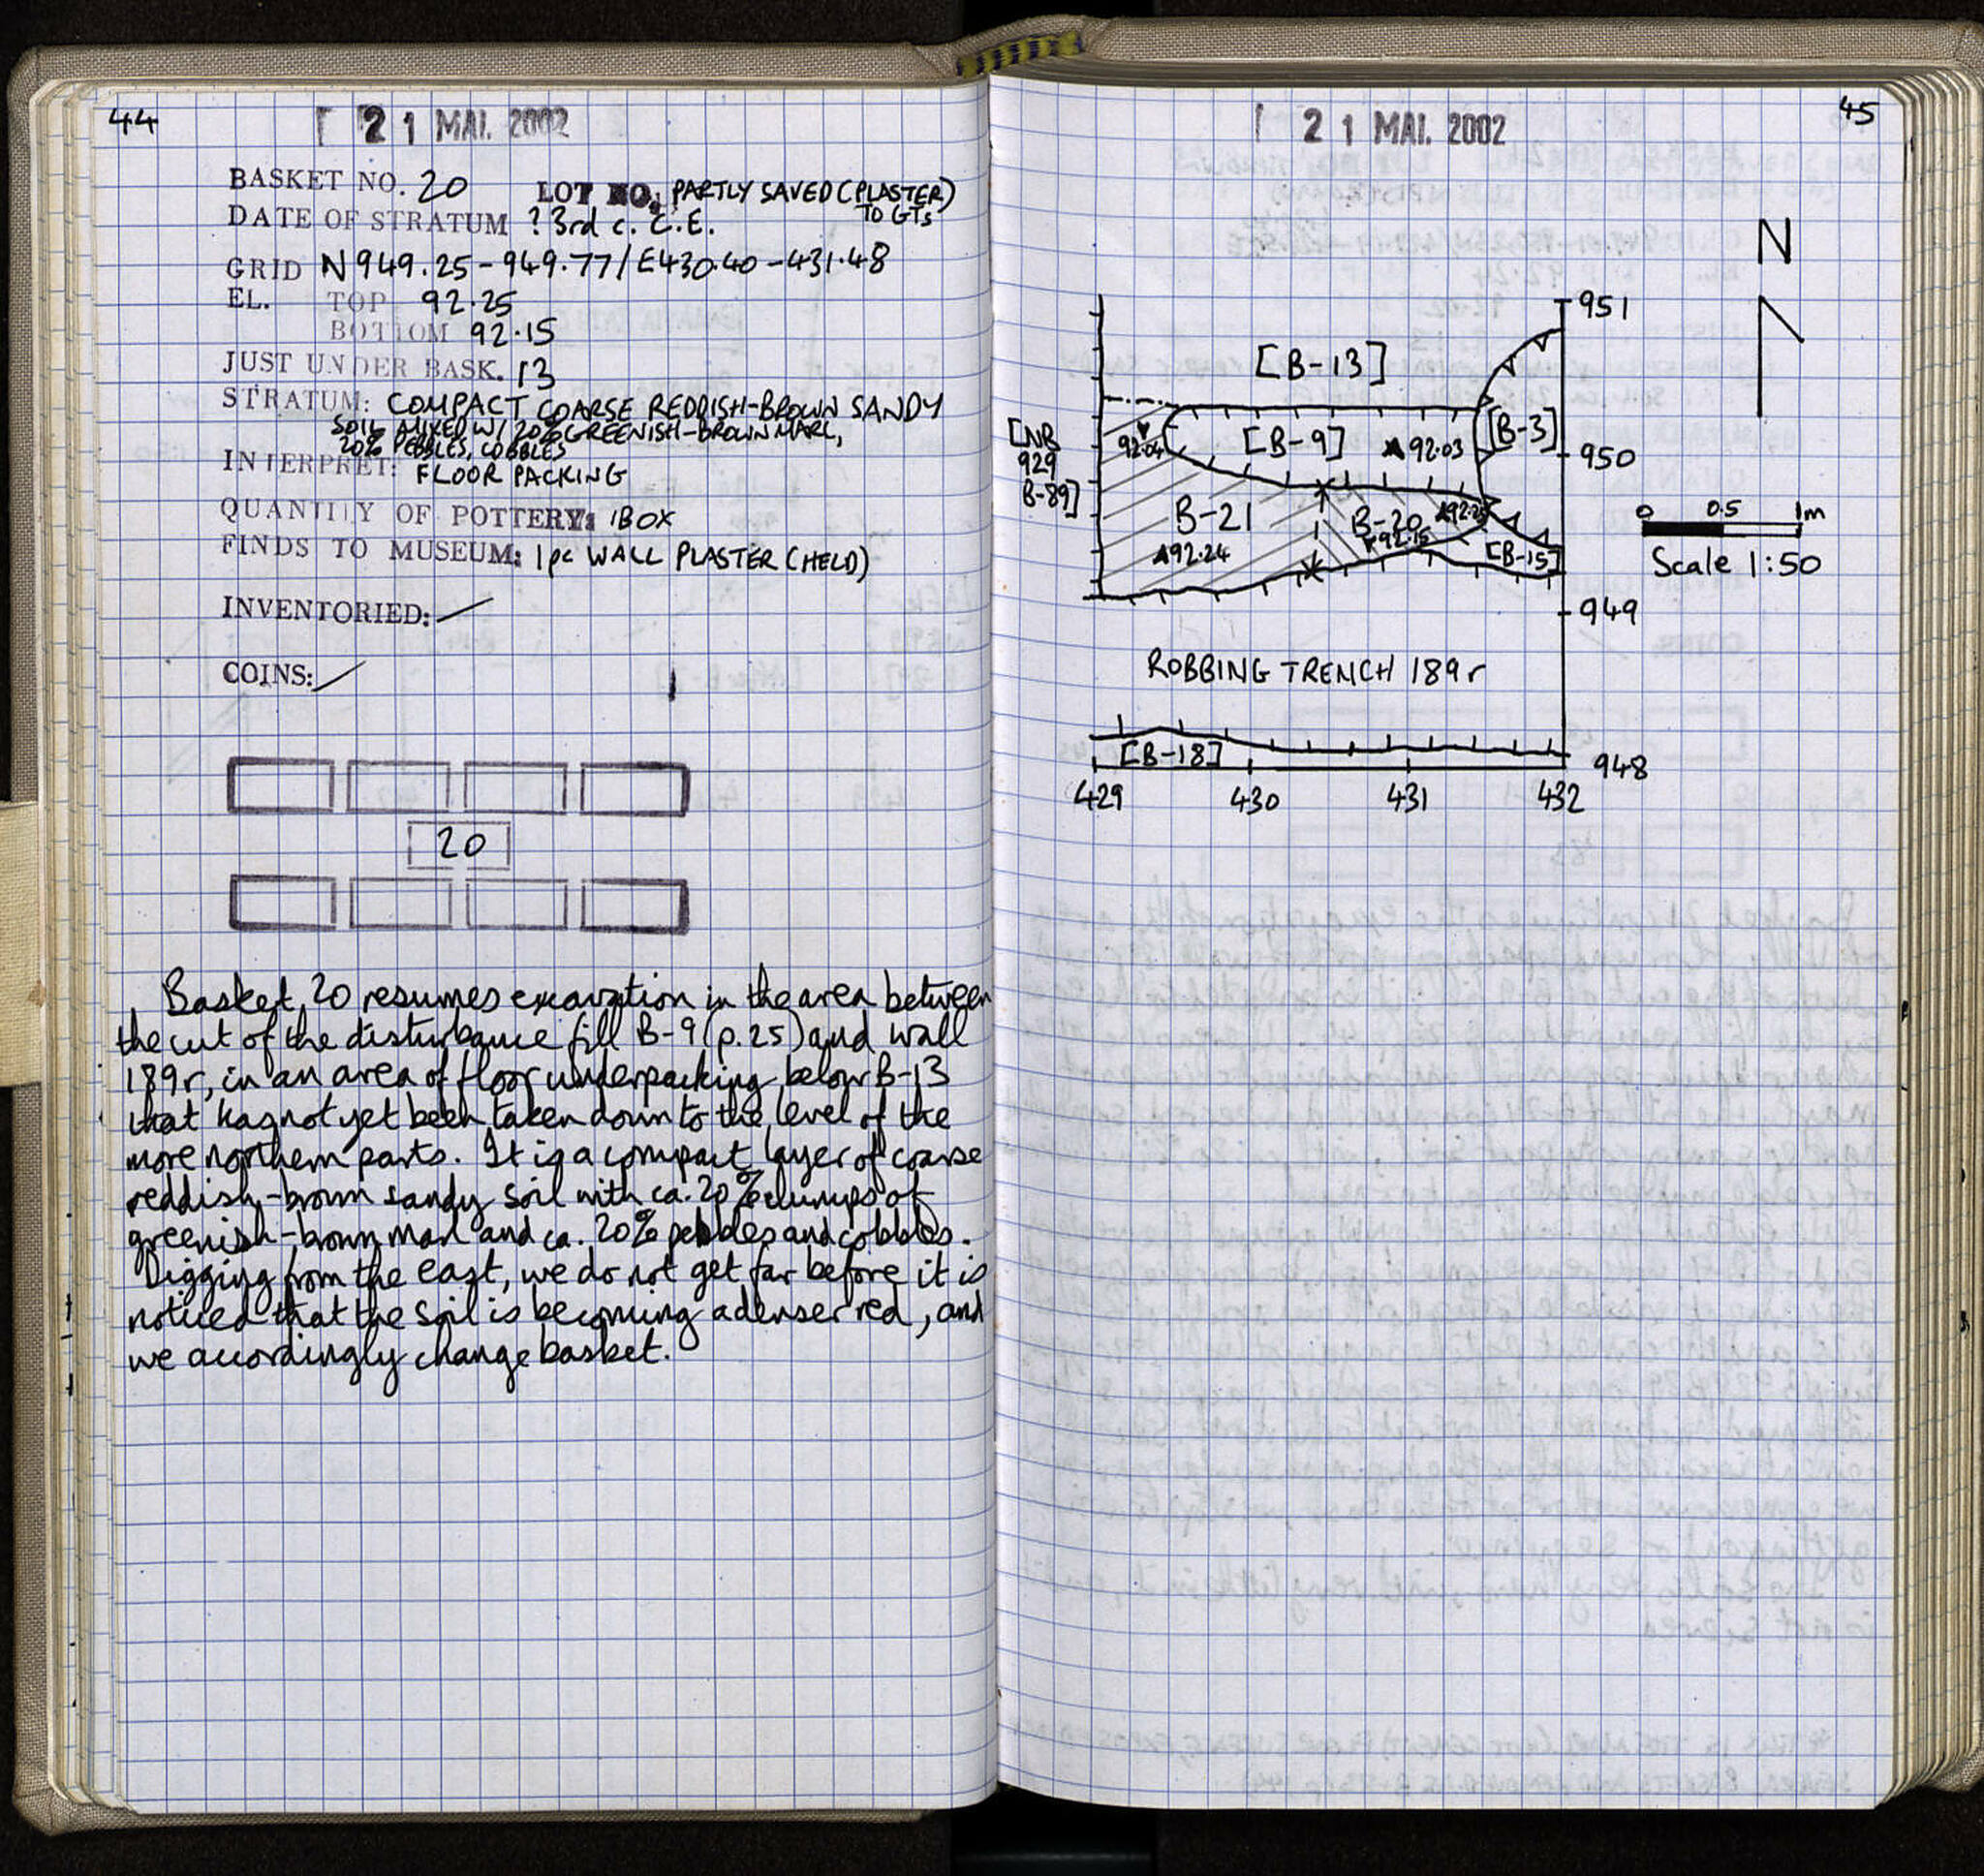 44
21 MAI. 2002
BASKET NO. 20 LOT NO. PARTLY SAVED (PLASTER)
TO GTs
DATE OF STRATUM ? 3rd c. C.E.
GRID N949.25-949.77/E430.40-431.48
EL. TOP 92.25
BOTTOM 92.15
JUST UNDER BASK. 13
STRATUM: COMPACT COARSE REDDISH-BROWN SANDY
SOIL MIXED W/ 20% GREENISH-BROWN MARL,
20% PEBBLES, COBBLES
INTERPRET: FLOOR PACKING
QUANTITY OF POTTERY: 1BOX
FINDS TO MUSEUM: 1 pc WALL PLASTER (HELD)
INVENTORIED:
COINS:
20
Basket 20 resumes excavation in the area between
the cut of the disturbance fill B-9 (p.25) and wall
189r, in an area of floor underpacking below B-13
that has not yet been taken down to the level of the
more northern parts. It is a compact layer of coarse
reddish-brown sandy soil with ca. 20% clumps of
greenish-brown marl and ca. 20% pebbles and cobbles.
Digging from the east, we do not get far before it is
noticed that the soil is becoming a denser red, and
we accordingly change basket.
45
21 MAI. 2002
N
951
[B-13]
[NB
929
B-89]
92.04
[B-9]
92.03
[B-3]
950
B-21
B-20
92.25
92.15
92.24
[B-15]
0 0.5 1m
Scale 1:50
949
ROBBING TRENCH 189r
[B-18]
948
429 430 431 432